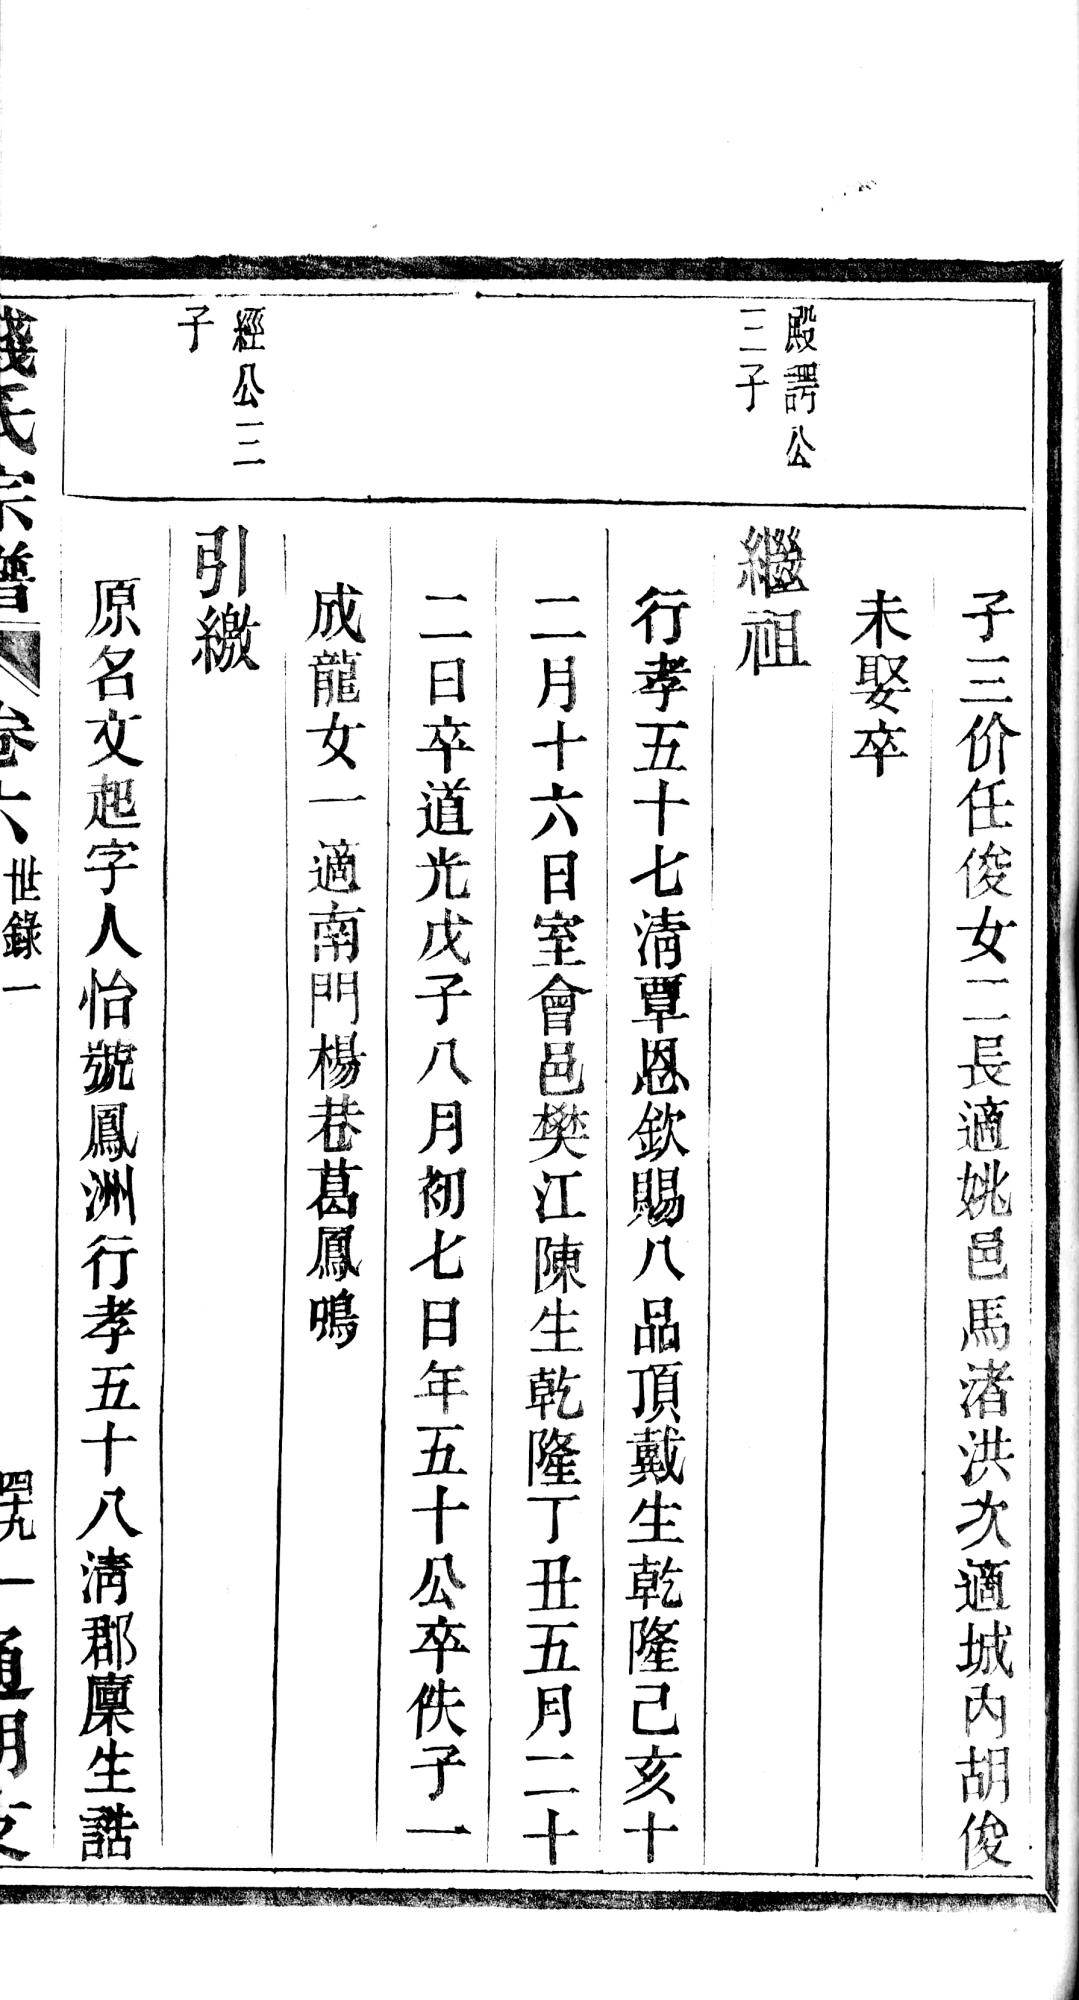 子三价任俊女二長適姚邑馬渚洪次適城內胡俊
未娶卒
殿諤公
三子
繼祖
行孝五十七清覃恩欽賜八品頂戴生乾隆己亥十
二月十六日室會邑樊江陳生乾隆丁丑五月二十
二日卒道光戊子八月初七日年五十公卒佚子一
成龍女一適南門楊巷葛鳳鳴
經公三
子
引繳
原名文起字人怡號鳳洲行孝五十八清郡廩生誥
錢氏宗譜
卷六
世錄一
四十九
通明支